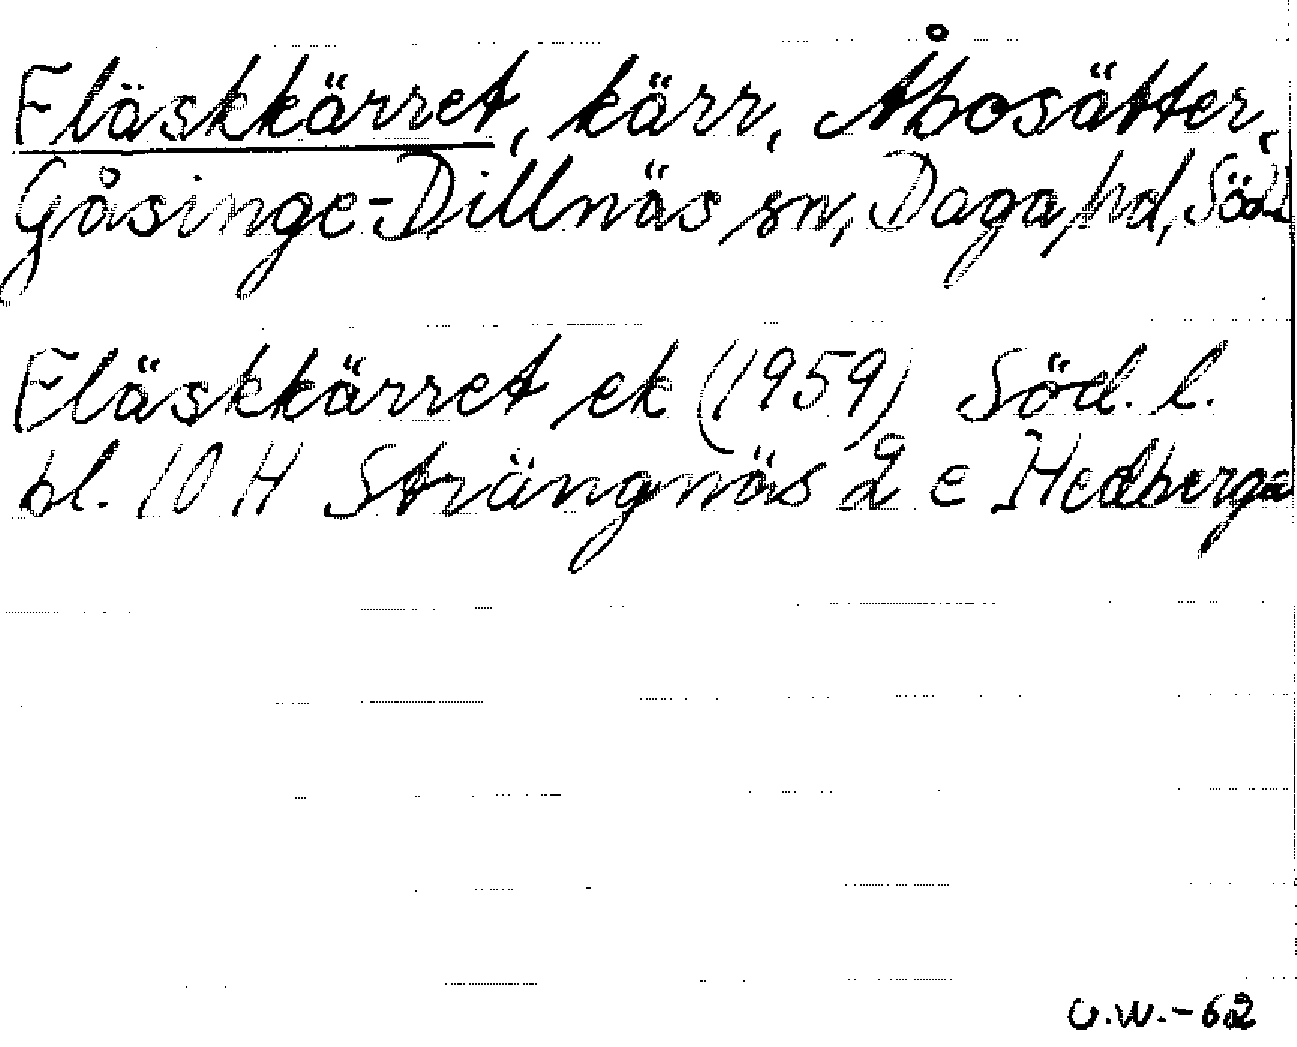 Fläskkärret, kärr, Åbosätter,
Gåsinge-Dillnäs sn, Daga hd, Söd
Fläskkärret ek (1959) Söd. l.
bl. 10 H Strängnäs 2 e Hedberga
U.W.-62